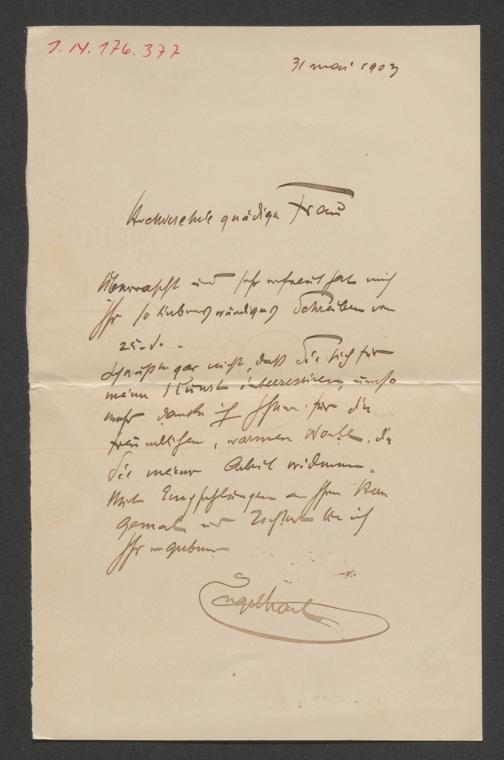 1.N.176.377
31 Mai 1903
Hochverehrte gnädige Frau
Überrascht und sehr erfreut hat mich
Ihr so liebenswürdiges Schreiben vom
25. d.
Ich wußte gar nicht, daß Sie sich für
meine Kunst interessiren, umso
mehr danke ich Ihnen für die
freundlichen, warmen Worte, die
Sie meiner Arbeit widmen.
Mit Empfehlungen an Ihren Herrn
Gemal und Tochter bin ich
Ihr ergebener
Engelhart